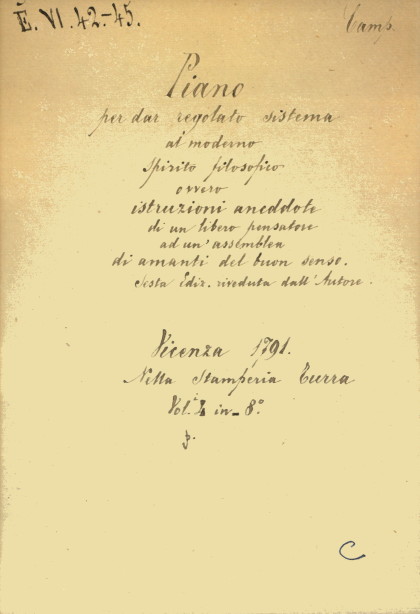 E. VI. 42-45.
Camp.
Piano
per dar regolato sistema
al moderno
spirito filosofico
ovvero
istruzioni aneddote
di un libero pensatore
ad un' assemblea
di amanti del buon senso.
Sesta Ediz. riveduta dall'Autore.
Vicenza 1791.
Nella Stamperia Turra
Vol. in-8.°
C